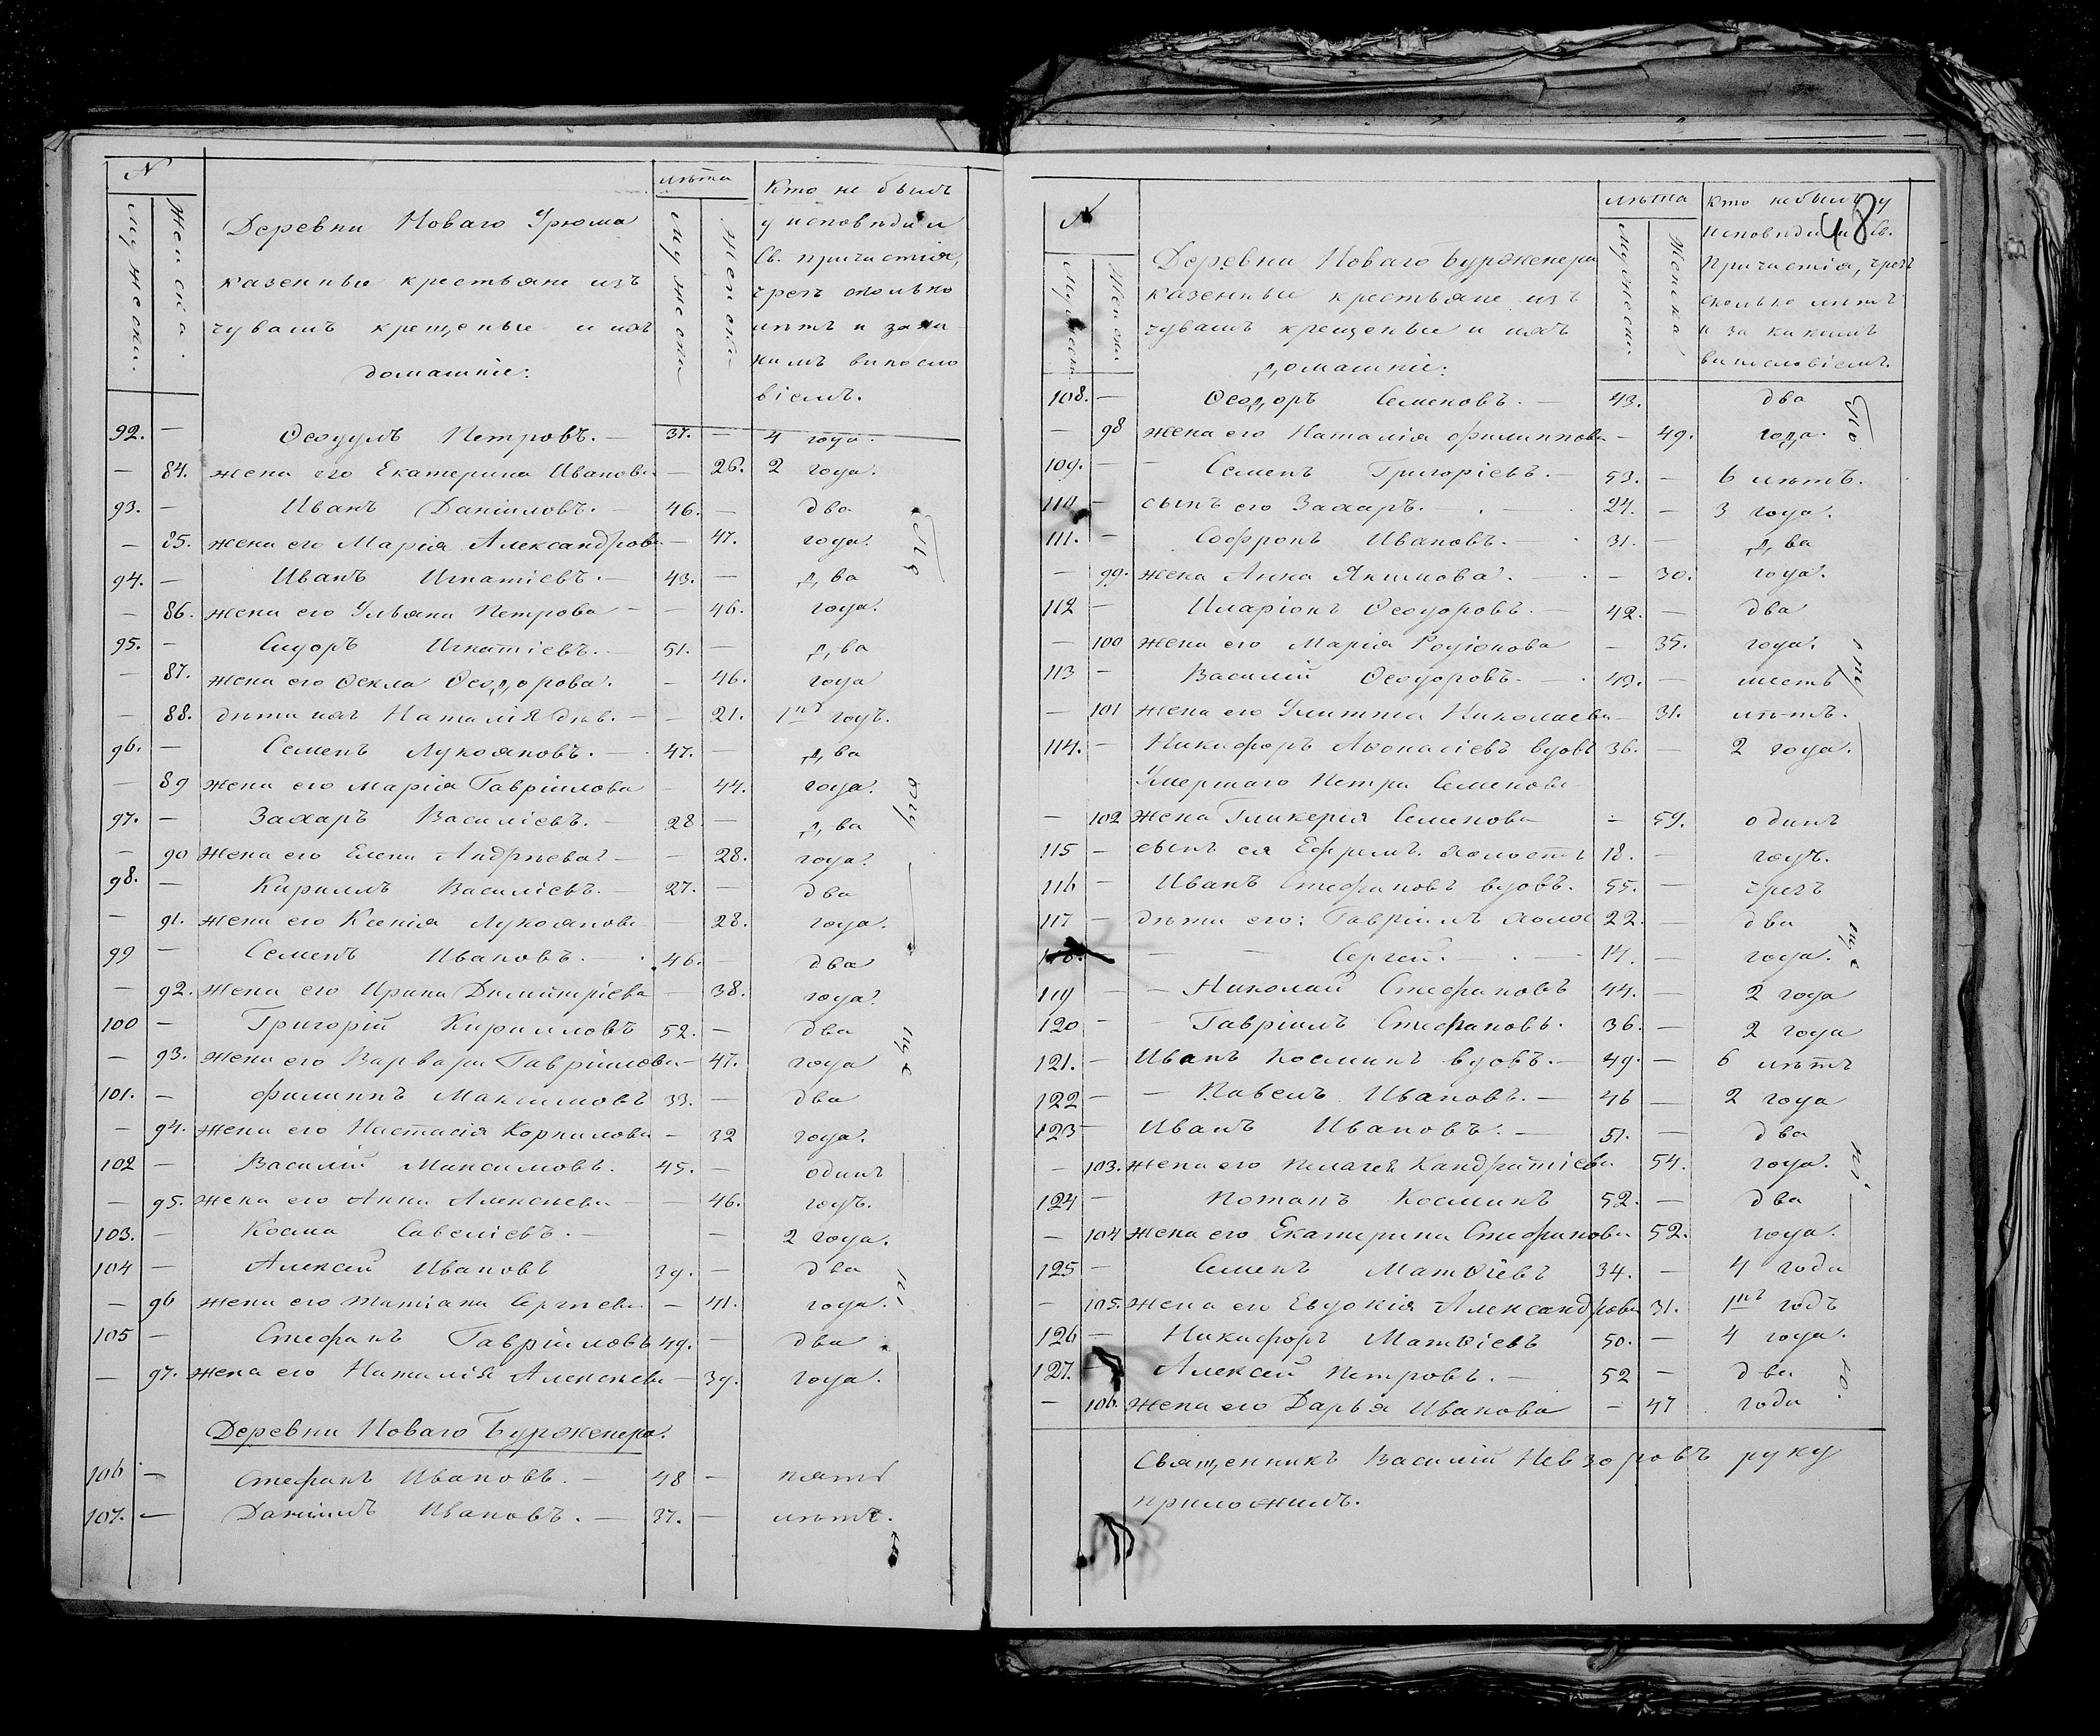 №
лѣта
Мужески.
Женска.
Деревни Новаго Урюма
казенные крестьяне изъ
чувашъ крещеные и ихъ
домашніе:
Мужески
Женски
Кто не былъ
у исповѣди и
Св. причастія,
чрезъ сколько
лѣтъ и за ка
кимъ винословіемъ.
92. — Ѳеодулъ Петровъ. — 37. — 4 года.
— 84. жена его Екатерина Иванова — 26. 2 года.
93. — Иванъ Даніиловъ. — 46. — два
— 85. жена его Марія Александрова — 47. года.
94. — Иванъ Игнатіевъ. — 43. — два
— 86. жена его Ульяна Петрова — — 46. года.
95. — Сидоръ Игнатіевъ. — 51. — два
— 87. жена его Ѳекла Ѳеодорова. — 46. года
— 88. дѣти ихъ Наталія дѣв. — — 21. 1нъ годъ.
96. — Семенъ Лукояновъ. — 47. — два
— 89 жена его Марія Гавріилова — 44. года.
97. — Захаръ Василіевъ. — 28 — два
— 90 жена его Елена Андреева — — 28. года.
98. — Кириллъ Василіевъ. — 27. — два
— 91. жена его Ксенія Лукоянова — 28. года.
99 — Семенъ Ивановъ. — 46. — два
— 92. жена его Ирина Димитріева — 38. года.
100 — Григорій Кирилловъ 52. — два
— 93. жена его Варвара Гавріилова — 47. года
101. — Филиппъ Максимовъ 33. — два
— 94. жена его Настасія Корнилова — 32 года.
102 — Василій Максимовъ. 45. — одинъ
— 95. жена его Анна Алексѣева — — 46. годъ.
103. — Косма Савеліевъ. — — 2 года.
104 — Алексей Ивановъ 39. — два
— 96 жена его Татіана Сергѣева — 41. года.
105 — Стефанъ Гавріиловъ 49. — два
— 97. жена его Наталія Алексѣева — 39. года.
Деревни Новаго Бурженера.
106 — Стефанъ Ивановъ. — 48 — пять
107. — Даніилъ Ивановъ. — 37. — лѣтъ.
48
№
лѣта
Мужески
Женски
Деревни Новаго Бурженера
казенные крестьяне изъ
чувашъ крещеные и ихъ
домашніе:
Мужески.
Женска
Кто небылъ у
исповѣди и Св.
Причастія, чрезъ
сколько лѣтъ
и за какимъ
винословіемъ.
108. — Ѳеодоръ Семеновъ. — 43. два
— 98 жена его Наталія Филиппова — 49. года.
109. — — Семенъ Григоріевъ. — 53. — 6 лѣтъ.
110 — сынъ его Захаръ. — 24. — 3 года.
111. — Софронъ Ивановъ. — 31. — два
— 99. жена Анна Якимова. — 30. года.
112 — Иларіонъ Ѳеодоровъ. — 42. — два
— 100 жена его Марія Родіонова — 35. года.
113 — Василій Ѳеодоровъ. — 43. — шесть
— 101 жена его Улитта Николаева — 31. лѣтъ.
114. — Никифоръ Аѳонасіевъ вдовъ 36. — 2 года.
Умершаго Петра Семенова
— 102 жена Гликерія Семенова — 59. одинъ
115 — сынъ ея Ефремъ. холостъ 18. — годъ.
116 — Иванъ Стефановъ вдовъ. 55. — чрезъ
117 — дѣти его: Гавріилъ холос 22. — два
118. — — Сергей. — 14. — года.
119 — — Николай Стефановъ 44. — 2 года
120 — — Гавріилъ Стефановъ. 36. — 2 года
121. — Иванъ Косминъ вдовъ. — 49. — 6 лѣтъ
122 — — Павелъ Ивановъ. — 46 — 2 года
123 — Иванъ Ивановъ. — 51. — два
— 103. жена его Пелагея Кандратіева 54. года.
124 — Потапъ Косминъ 52. — два
— 104 жена его Екатерина Стефанова 52. года.
125 — Семенъ Матѳіевъ 34. — 4 года
— 105. жена его Евдокія Александрова 31. 1нъ годъ
126 — Никифоръ Матѳіевъ 50. — 4 года.
127. — Алексей Петровъ. — 52 — два
— 106. жена его Дарья Иванова — 47 года
Священникъ Василій Невзоровъ руку
приложилъ.